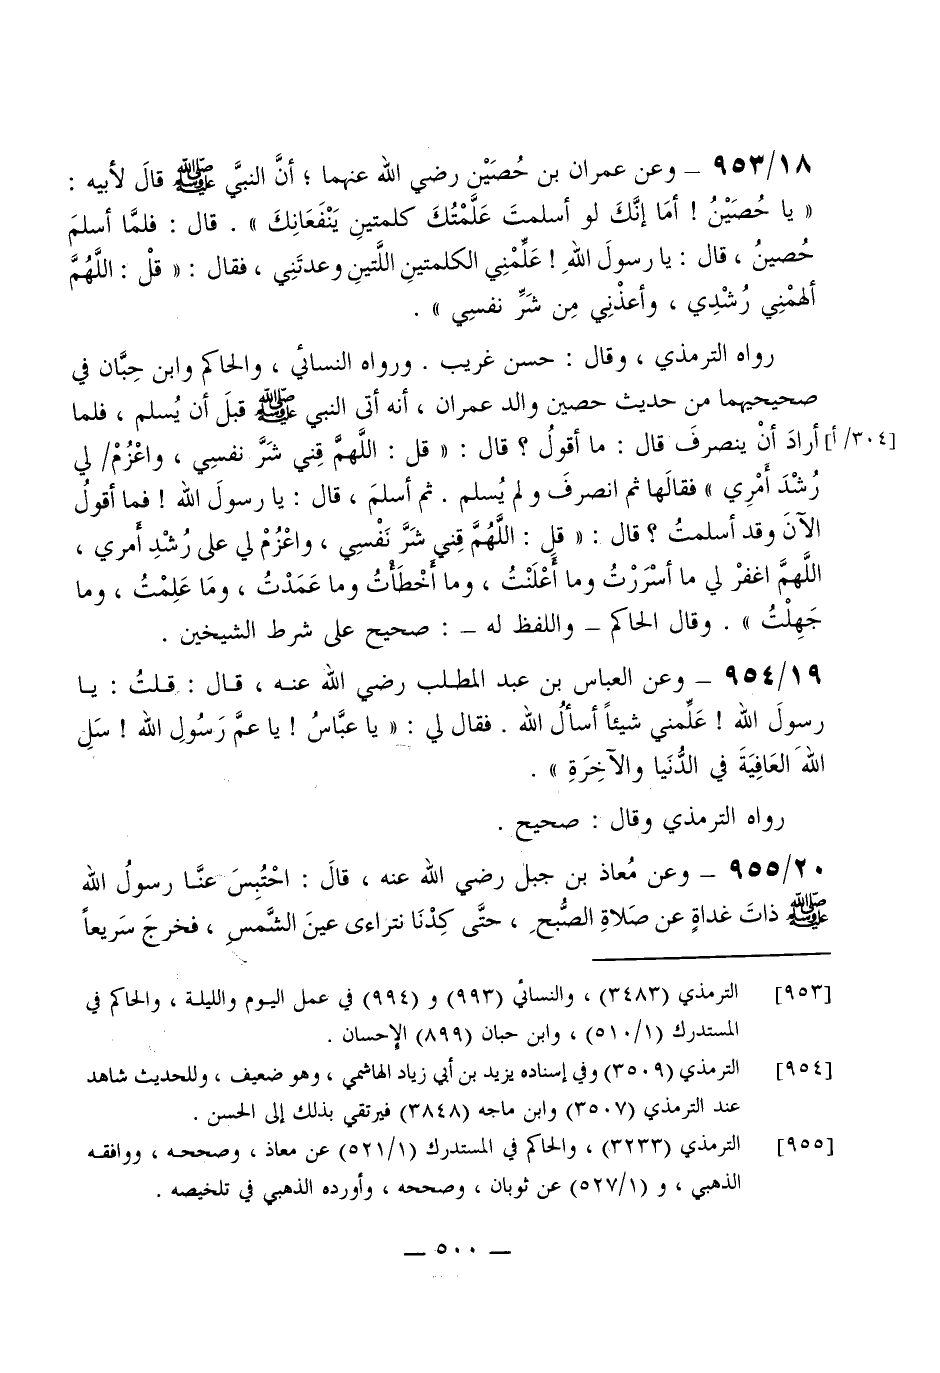 ٩٥٣/١٨ ــ وعن عمران بن حُصَيْن رضي الله عنهما ؛ أنَّ النبيَّ ﷺ قالَ لأبيه :
« يا حُصَيْنُ ! أمَا إنَّكَ لو أسلمتَ عَلَّمْتُكَ كلمتينِ يَنْفَعَانِكَ » . قال : فلمَّا أسلمَ
حُصينُ ، قال : يا رسولَ اللهِ ! عَلِّمْنِي الكلمتينِ اللَّتينِ وعدتَنِي ، فقال : « قلْ : اللَّهُمَّ
ألهمْنِي رُشْدِي ، وأعذْنِي مِن شَرِّ نفسِي » .
رواه الترمذي ، وقال : حسن غريب . ورواه النسائي ، والحاكم وابن حِبَّان في
صحيحيهما من حديث حصين والد عمران ، أنه أتى النبي ﷺ قبلَ أن يُسلم ، فلما
[٣٠٤/ أ] أرادَ أنْ ينصرفَ قال : ما أقولُ ؟ قال : « قل : اللهمَّ قِني شرَّ نفسِي ، واعْزُمْ/ لي
رُشْدَ أَمْرِي » فقالَها ثم انصرفَ ولم يُسلم . ثم أسلمَ ، قال : يا رسولَ الله ! فما أقولُ
الآنَ وقد أسلمتُ ؟ قال : « قلِ : اللَّهُمَّ قِني شَرَّ نَفْسِي ، واعْزُمْ لي على رُشْدِ أَمري ،
اللَّهمَّ اغفرْ لي ما أسْرَرْتُ وما أَعْلَنْتُ ، وما أَخْطَأْتُ وما عَمَدْتُ ، ومَا عَلِمْتُ ، وما
جَهِلْتُ » . وقال الحاكم ــ واللفظ له ــ : صحيح على شرط الشيخين .
٩٥٤/١٩ ــ وعن العباس بن عبد المطلب رضي الله عنه ، قال : قلتُ : يا
رسولَ الله ! عَلِّمني شيئاً أسألُ الله . فقال لي : « يا عبَّاسُ ! يا عمَّ رَسُولِ الله ! سَلِ
اللهَ العَافِيَةَ في الدُّنيَا والآخِرَةِ » .
رواه الترمذي وقال : صحيح .
٩٥٥/٢٠ ــ وعن مُعاذ بن جبل رضي الله عنه ، قالَ : احْتُبِسَ عنَّا رسولُ الله
ﷺ ذاتَ غداةٍ عن صَلاةِ الصُّبحِ ، حتَّى كِدْنَا نتراءى عينَ الشَّمسِ ، فخرجَ سَريعاً
[٩٥٣] الترمذي (٣٤٨٣) ، والنسائي (٩٩٣) و (٩٩٤) في عمل اليوم والليلة ، والحاكم في
المستدرك (٥١٠/١) ، وابن حبان (٨٩٩) الإحسان .
[٩٥٤] الترمذي (٣٥٠٩) وفي إسناده يزيد بن أبي زياد الهاشمي ، وهو ضعيف ، وللحديث شاهد
عند الترمذي (٣٥٠٧) وابن ماجه (٣٨٤٨) فيرتقي بذلك إلى الحسن .
[٩٥٥] الترمذي (٣٢٣٣) ، والحاكم في المستدرك (٥٢١/١) عن معاذ ، وصححه ، ووافقه
الذهبي ، و (٥٢٧/١) عن ثوبان ، وصححه ، وأورده الذهبي في تلخيصه .
ــ ٥٠٠ ــ